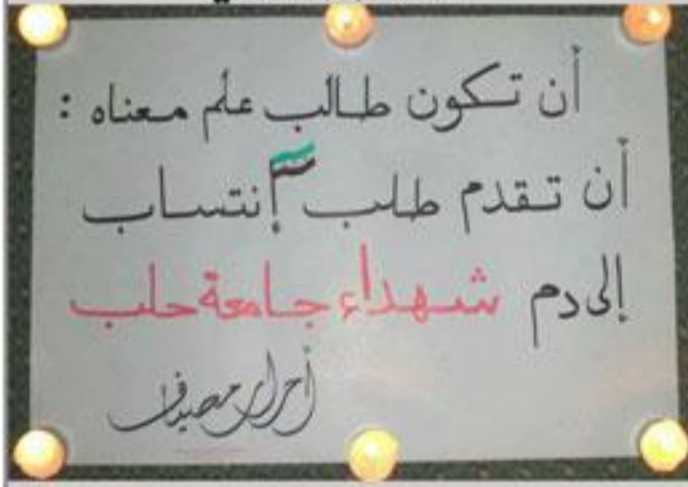 أن تكون طالب علم معناه :
أن تقدم طلب إنتساب
إلى دم شهداء جامعة حلب
أحرار مصياف